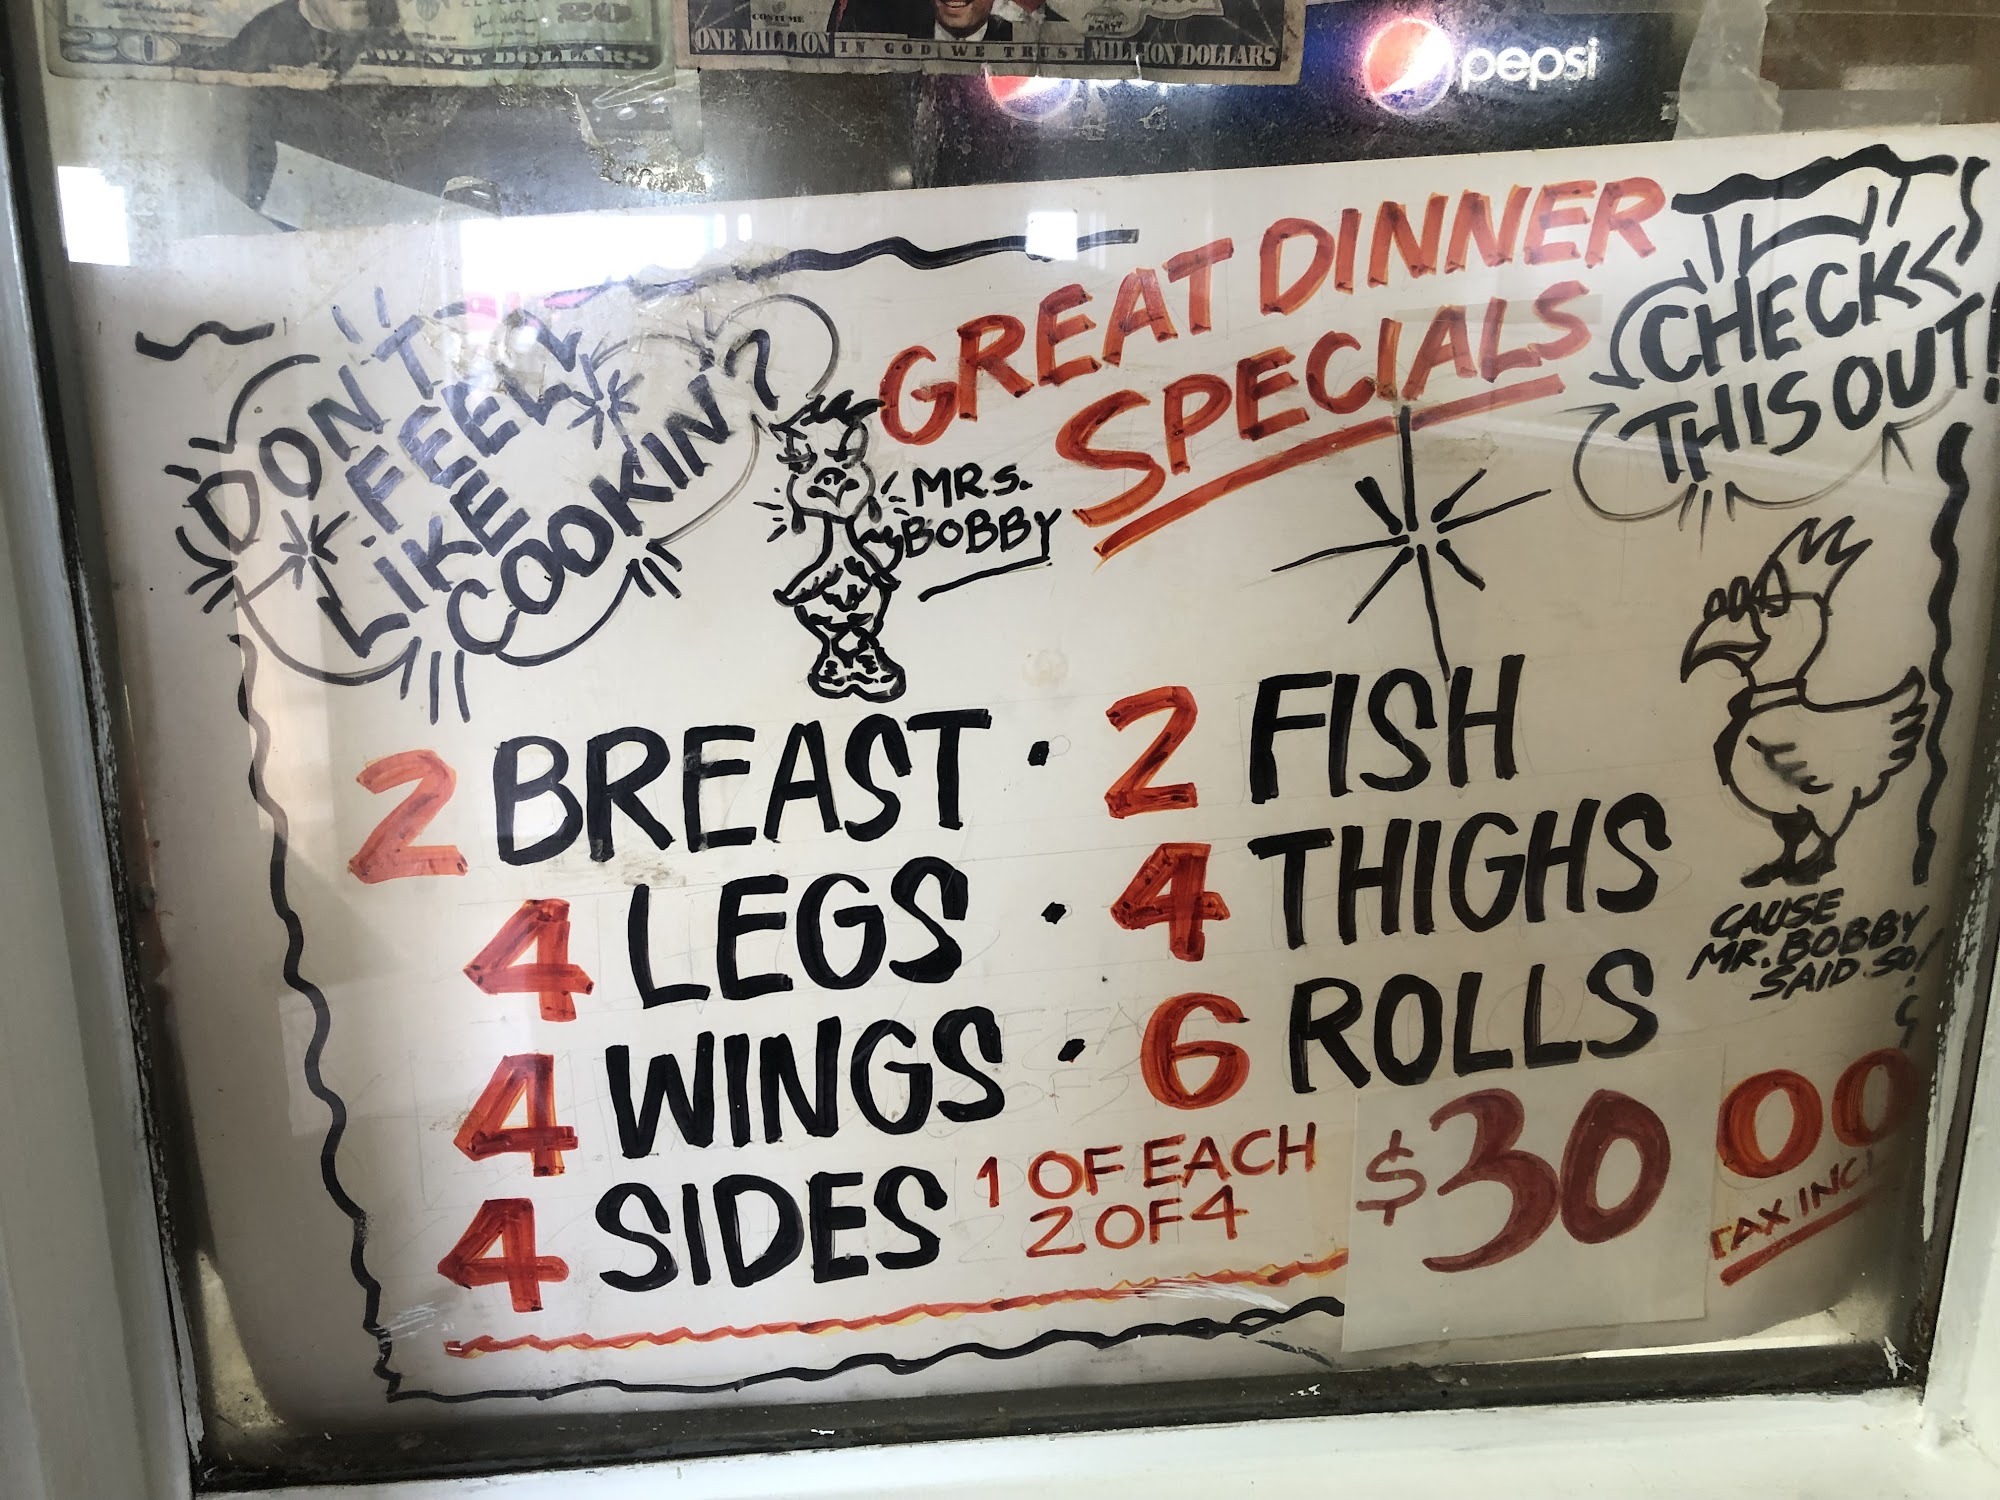 20 TWENTY DOLLARS 20
COSTUME
PARTY
ONE MILLION IN GOD WE TRUST MILLION DOLLARS
pepsi
DON'T
FEEL
LIKE
COOKIN?
MRS.
BOBBY
GREAT DINNER
SPECIALS
CHECK
THIS OUT!
2 BREAST · 2 FISH
4 LEGS · 4 THIGHS
4 WINGS · 6 ROLLS
4 SIDES 1 OF EACH
2 OF 4
$30 00
TAX INCL
CAUSE
MR. BOBBY
SAID SO!